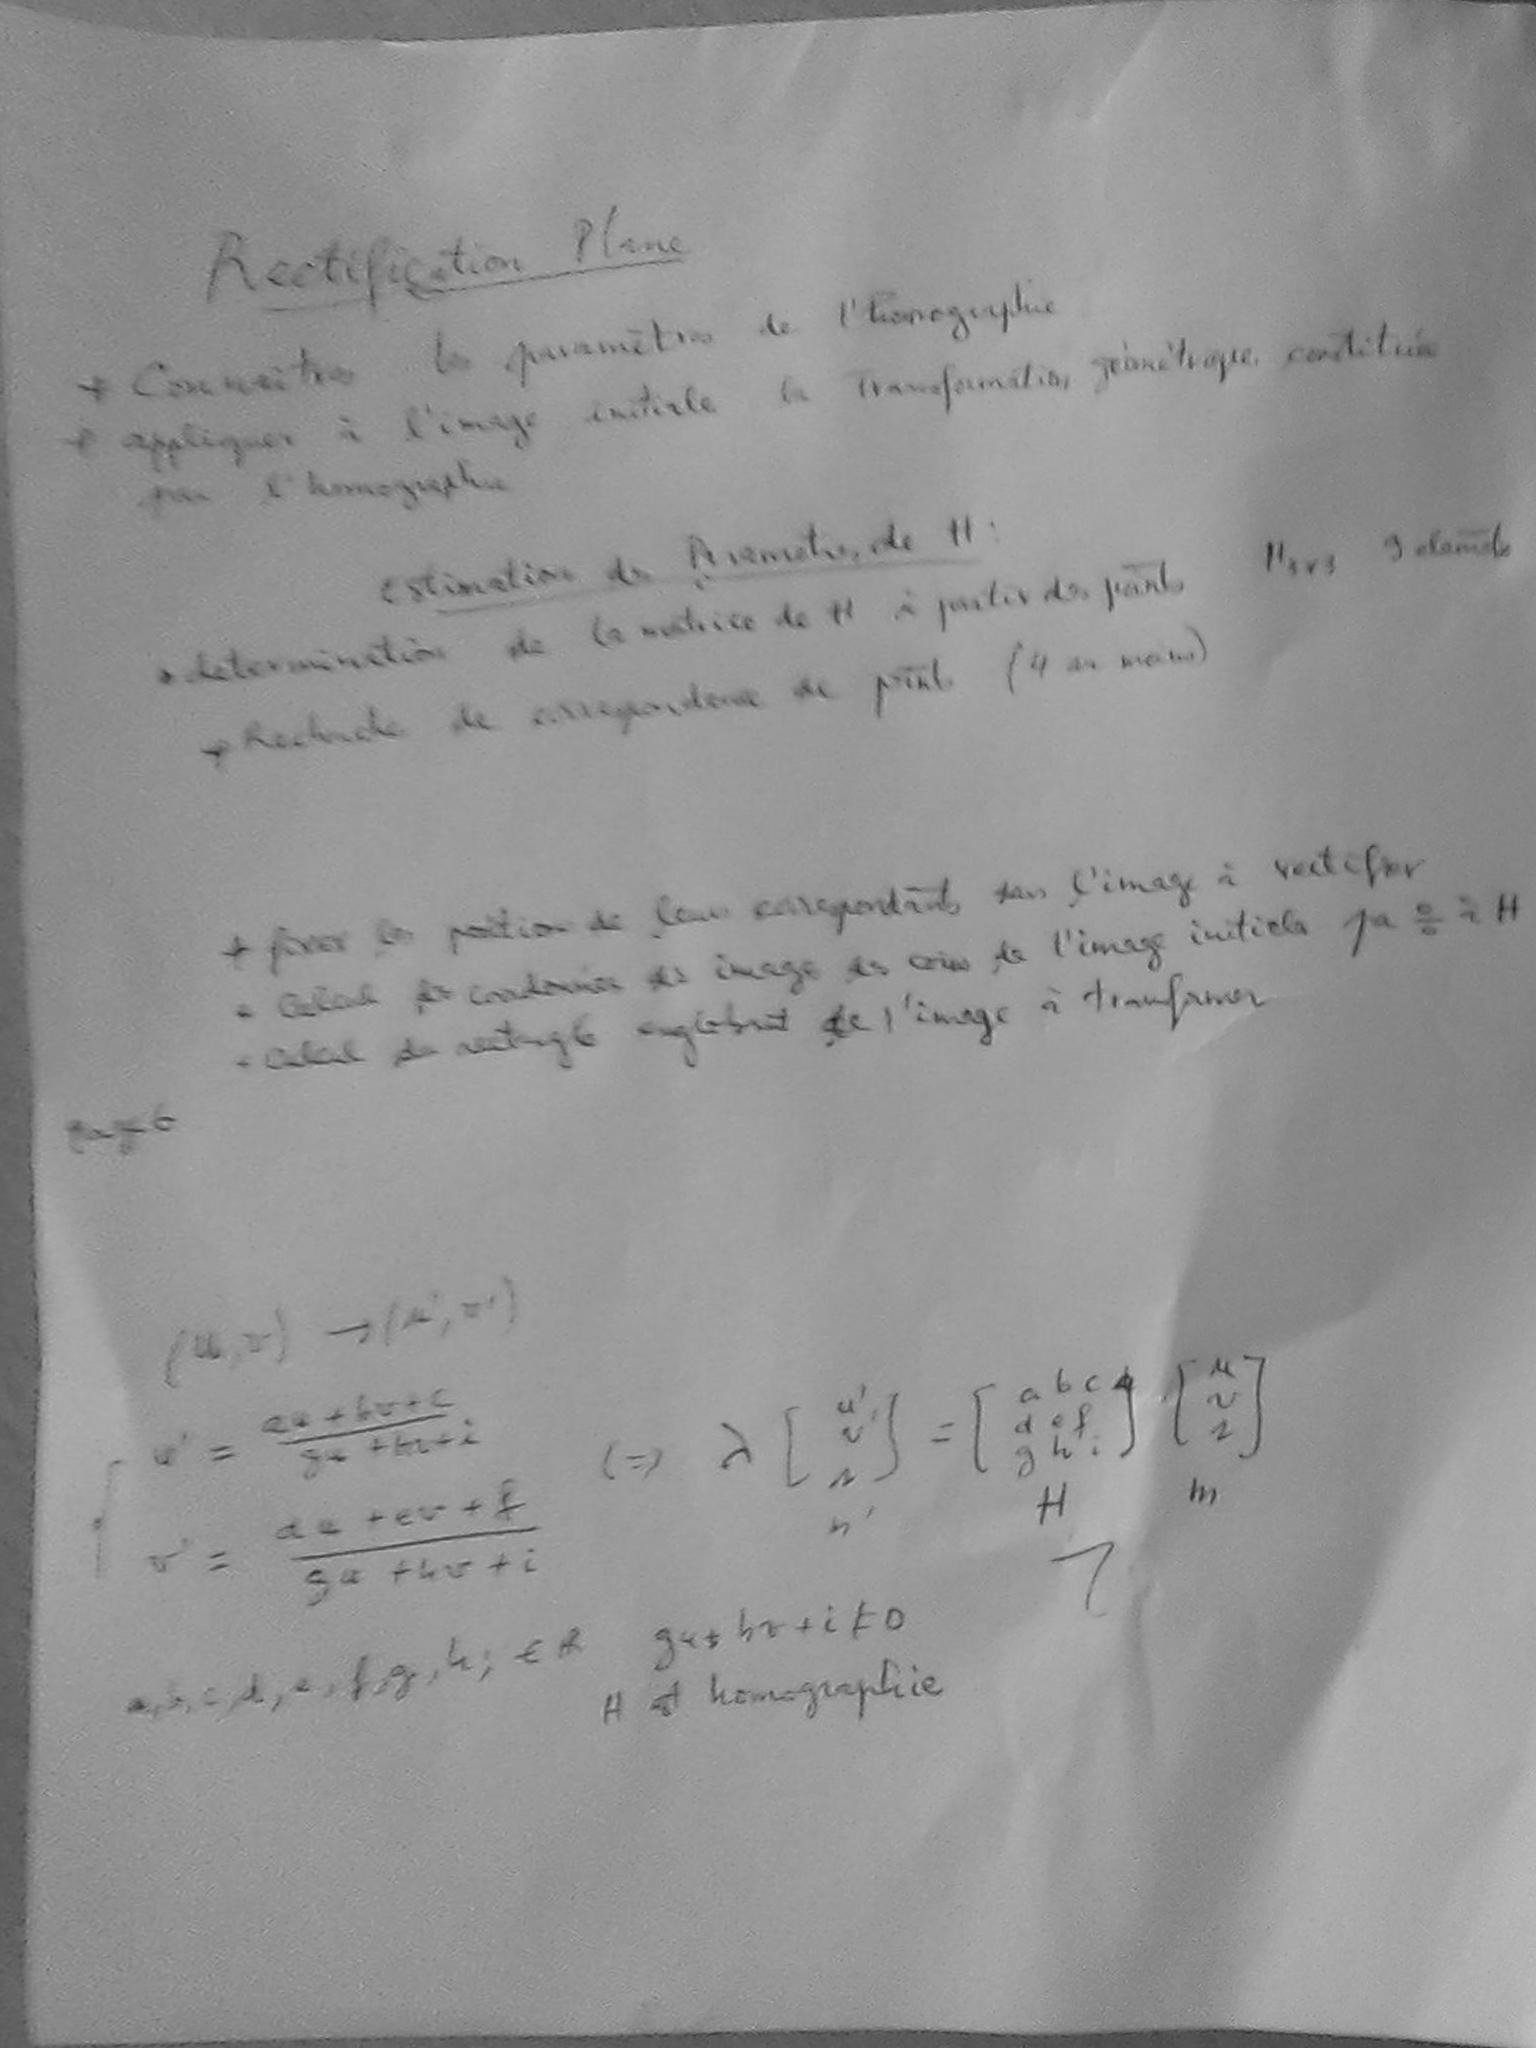 Rectification Plane
+ Connaitres les paramètres de l'homographie
+ appliquer à l'image initiale la transformation géométrique constituée
par l'homographie
Estimation des Parametres de H :
• determination de la matrice de H à partir des points H3x3 9 elements
+ Recherche de correspondance de points (4 au moins)
+ fixer les position de leurs correspondants dans l'image à rectifier
• Calcul des coordonnées des image des coins de l'image initiale pa à H
- Calcul du rectangle englobant de l'image à transformer
(u,v) → (u',v')
u' = au + bv + c / gu + hv + i
v' = du + ev + f / gu + hv + i
(=> λ [u' v' 1] = [a b c d e f g h i] · [u v 1]
H m
a, b, c, d, e, f, g, h, i ∈ R gu + hv + i ≠ 0
H est homographie